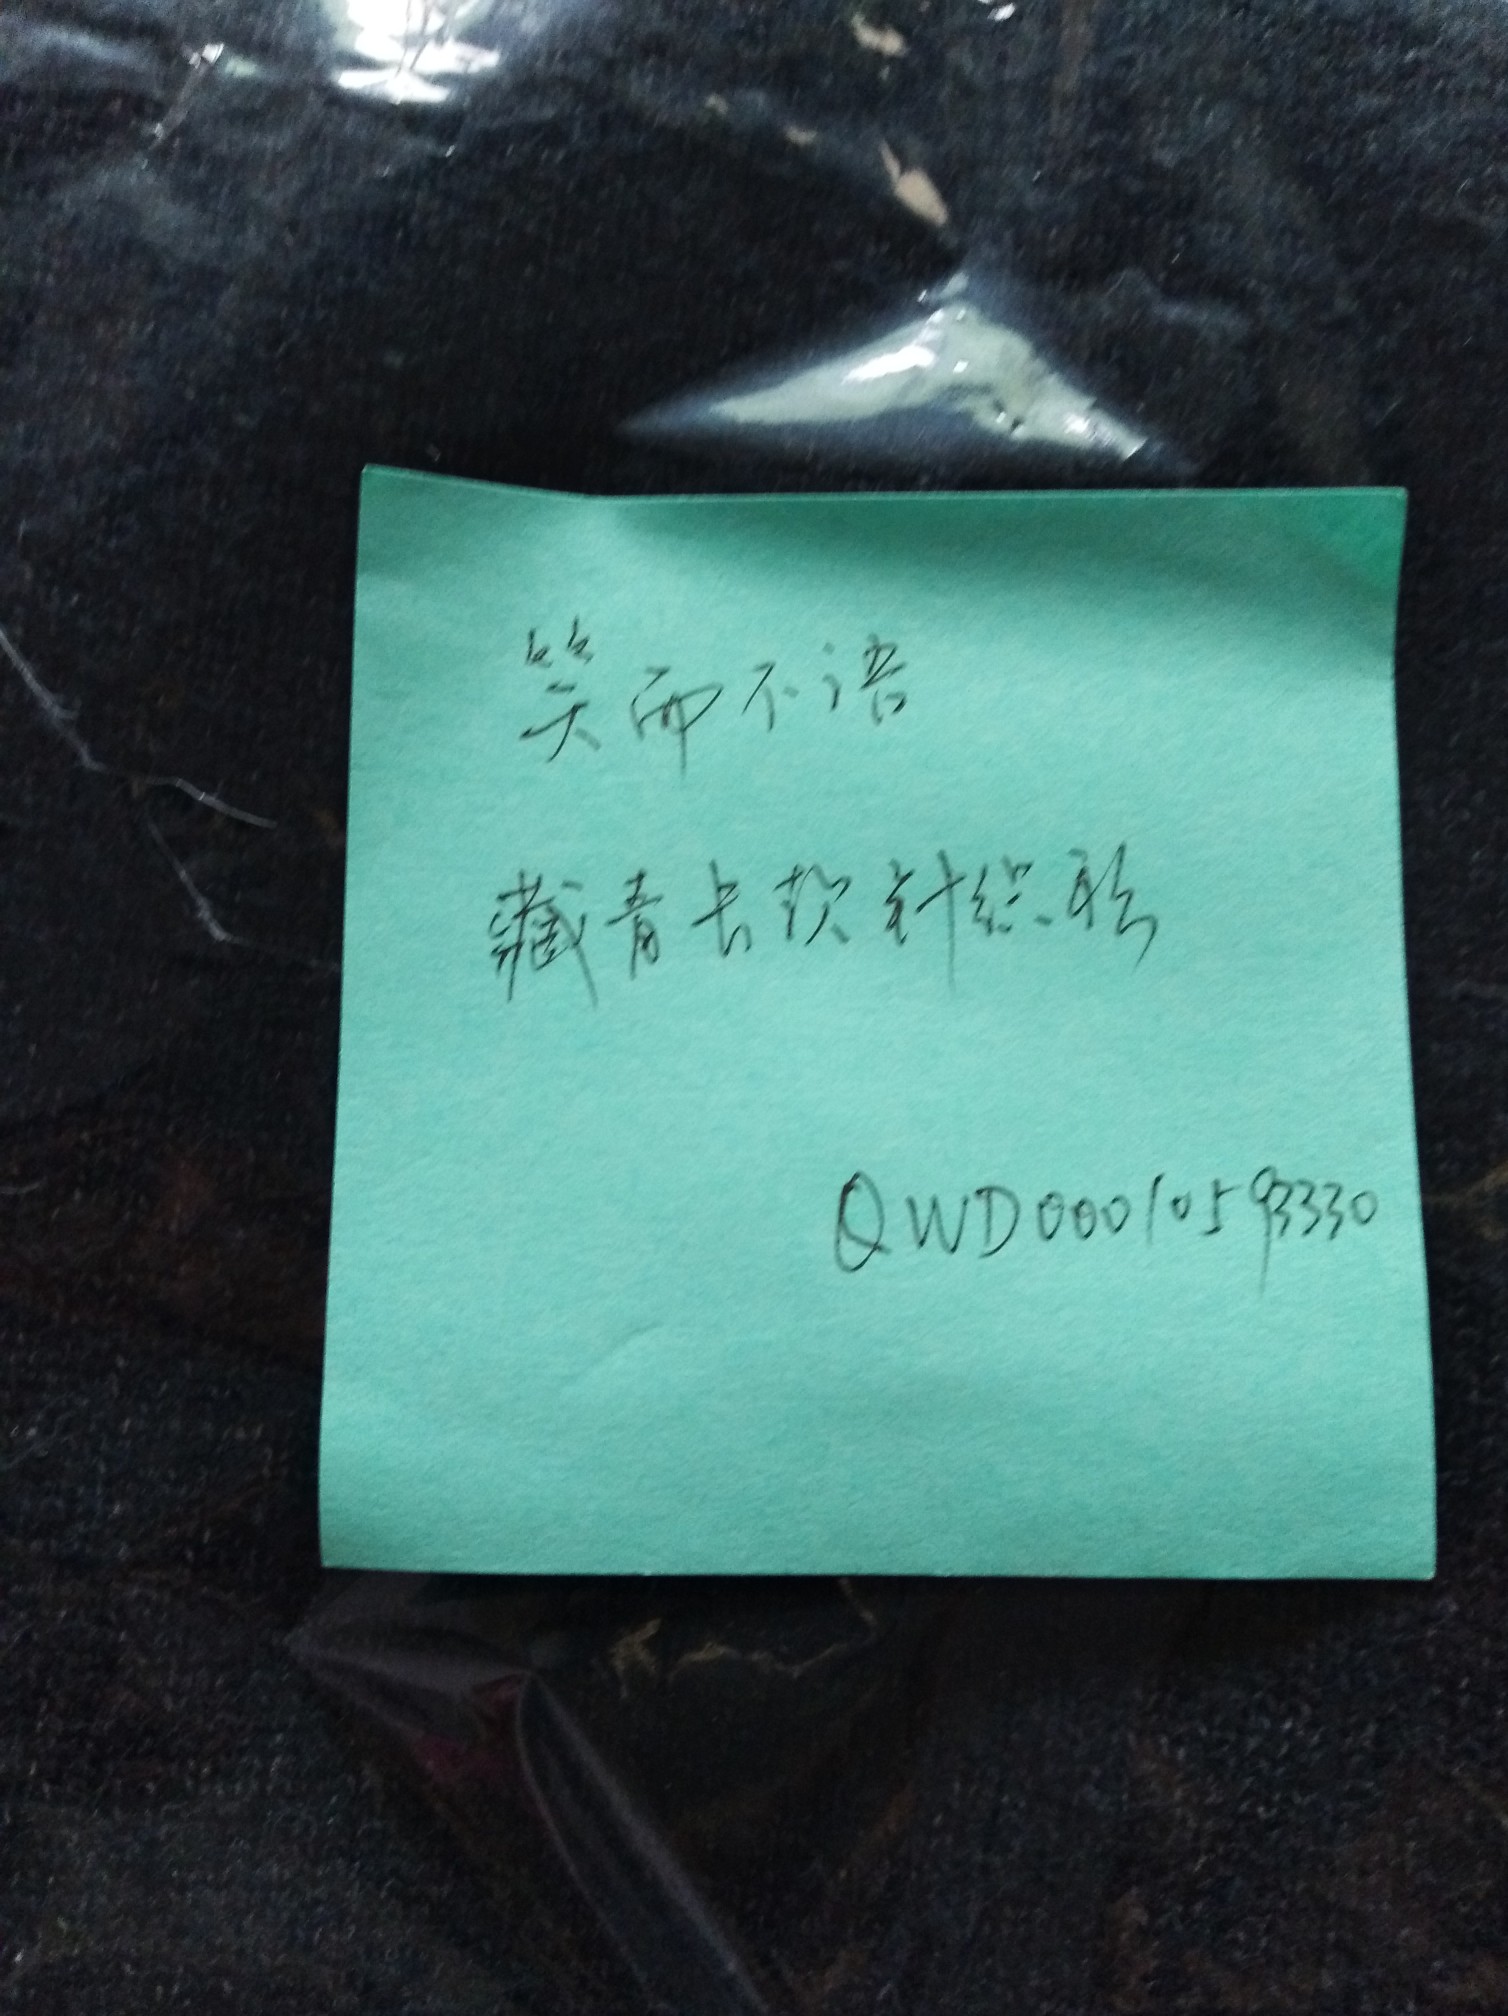 笑而不语
藏青长款针织衫
QWD00010593330